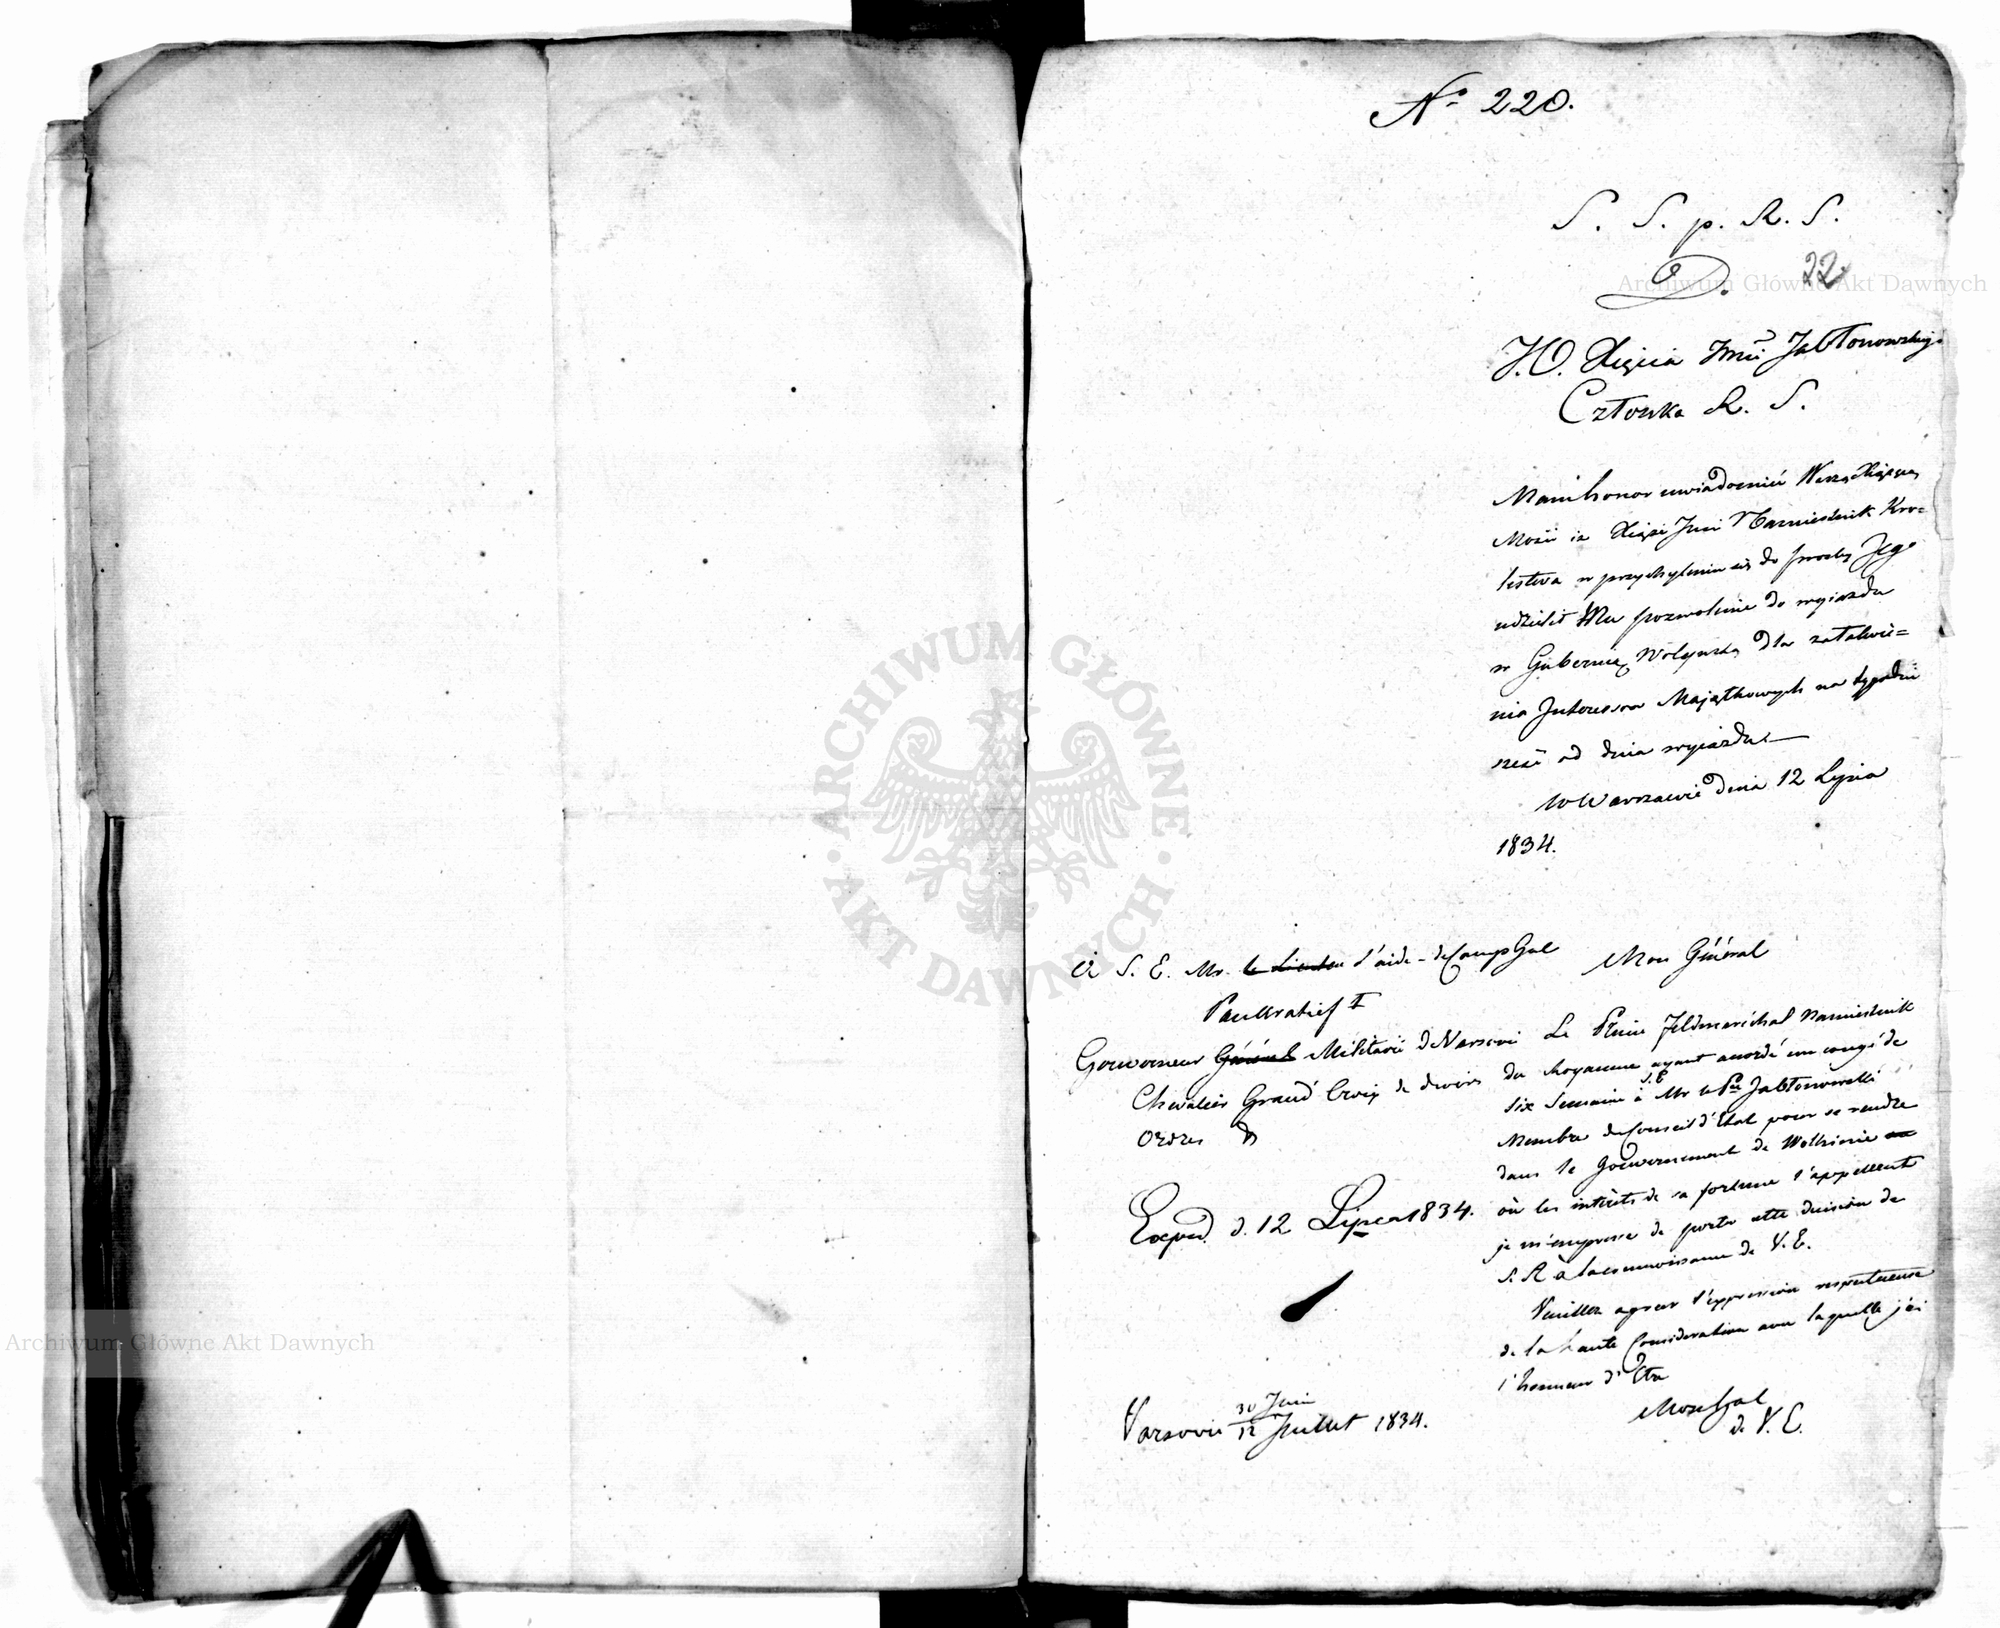 No 220.
S. S. p. R. S.
D.
22
J.O. Xięcia Jmći Jabłonowskiego
Członka R. S.
Mam honor uwiadomić Waszą Xiążęcą
Mość iż Xiąże Jmć Namiestnik Kró=
lestwa w przychyleniu się do prośby Jego
udzielił Mu pozwolenie do wyiazdu
w Gubernię Wołyńską dla załatwie=
nia Interessow Majątkowych na tygodni
sześć od dnia wyiazdu.—
w Warszawie dnia 12 Lipca
1834.
à S. E. Mr. le Lieuten l'aide-de Camp Gal
Pankratief I
Gouverneur Général Militaire de Varsovie
Chevalier Grand Croix de divers
Ordres
Exped. d. 12 Lipca 1834.
Varsovie 30 Juin
12 Juillet 1834.
Mon Général
Le Prince Feldmaréchal Namiestnik
du Royaume ayant accordé un congé de
six Semaines à S.E. Mr le Pce Jabłonowski
Membre du Conseil d'Etat pour se rendre
dans le Gouvernement de Wolhinie
où les intérêts de sa fortune l'appellent
je m'empresse de porter cette décision de
S. A à la connoissance de V. E.
Veuillez agréer l'expression respectueuse
de la haute Consideration avec laquelle j'ai
l'honneur d'Etre
Mon Gal
de V. E.
Archiwum Główne Akt Dawnych
ARCHIWUM GŁÓWNE
AKT DAWNYCH
Archiwum Główne Akt Dawnych